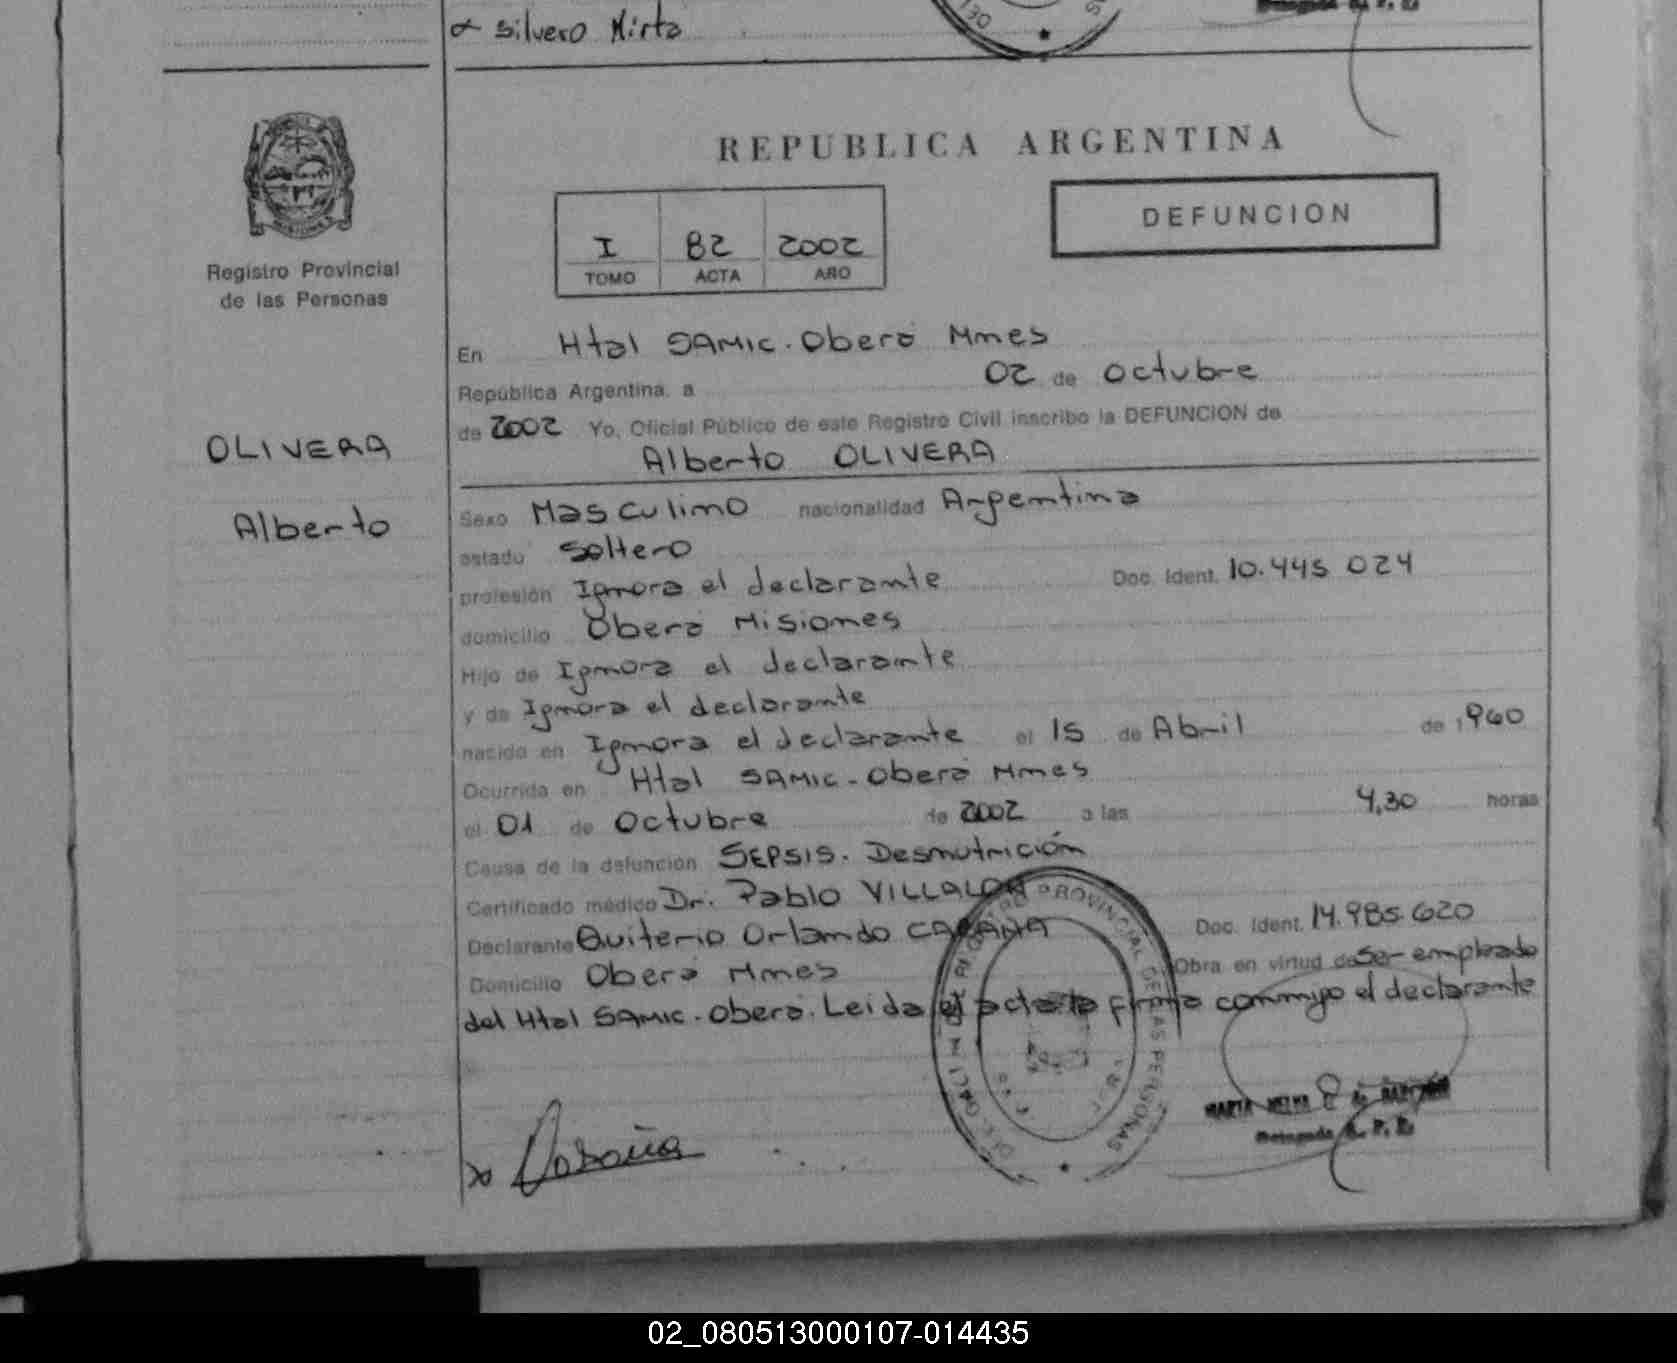 Silvero Mirta
REPUBLICA ARGENTINA
DEFUNCION
I 82 2002
TOMO ACTA AÑO
Registro Provincial
de las Personas
En Htal SAMIC. Oberá Mnes
República Argentina, a 02 de Octubre
de 2002 Yo, Oficial Público de este Registro Civil inscribo la DEFUNCION de
Alberto OLIVERA
OLIVERA
Alberto
Sexo Masculino nacionalidad Argentina
estado Soltero
profesión Ignora el declarante Doc. Ident. 10.445 024
domicilio Oberá Misiones
Hijo de Ignora el declarante
y de Ignora el declarante
nacido en Ignora el declarante el 15 de Abril de 1960
Ocurrida en Htal SAMIC - Oberá Mnes
el 01 de Octubre de 2002 a las 4,30 horas
Causa de la defunción SEPSIS. Desnutrición
Certificado médico Dr. Pablo VILLALBA
Declarante Quiterio Orlando Doc. Ident. 14.985.620
Domicilio Oberá Mnes Obra en virtud de Ser empleado
del Htal SAMIC. Oberá. Leida el acta la firma conmigo el declarante
REGISTRO PROVINCIAL DE LAS PERSONAS
Delegada R. P. P.
02_080513000107-014435